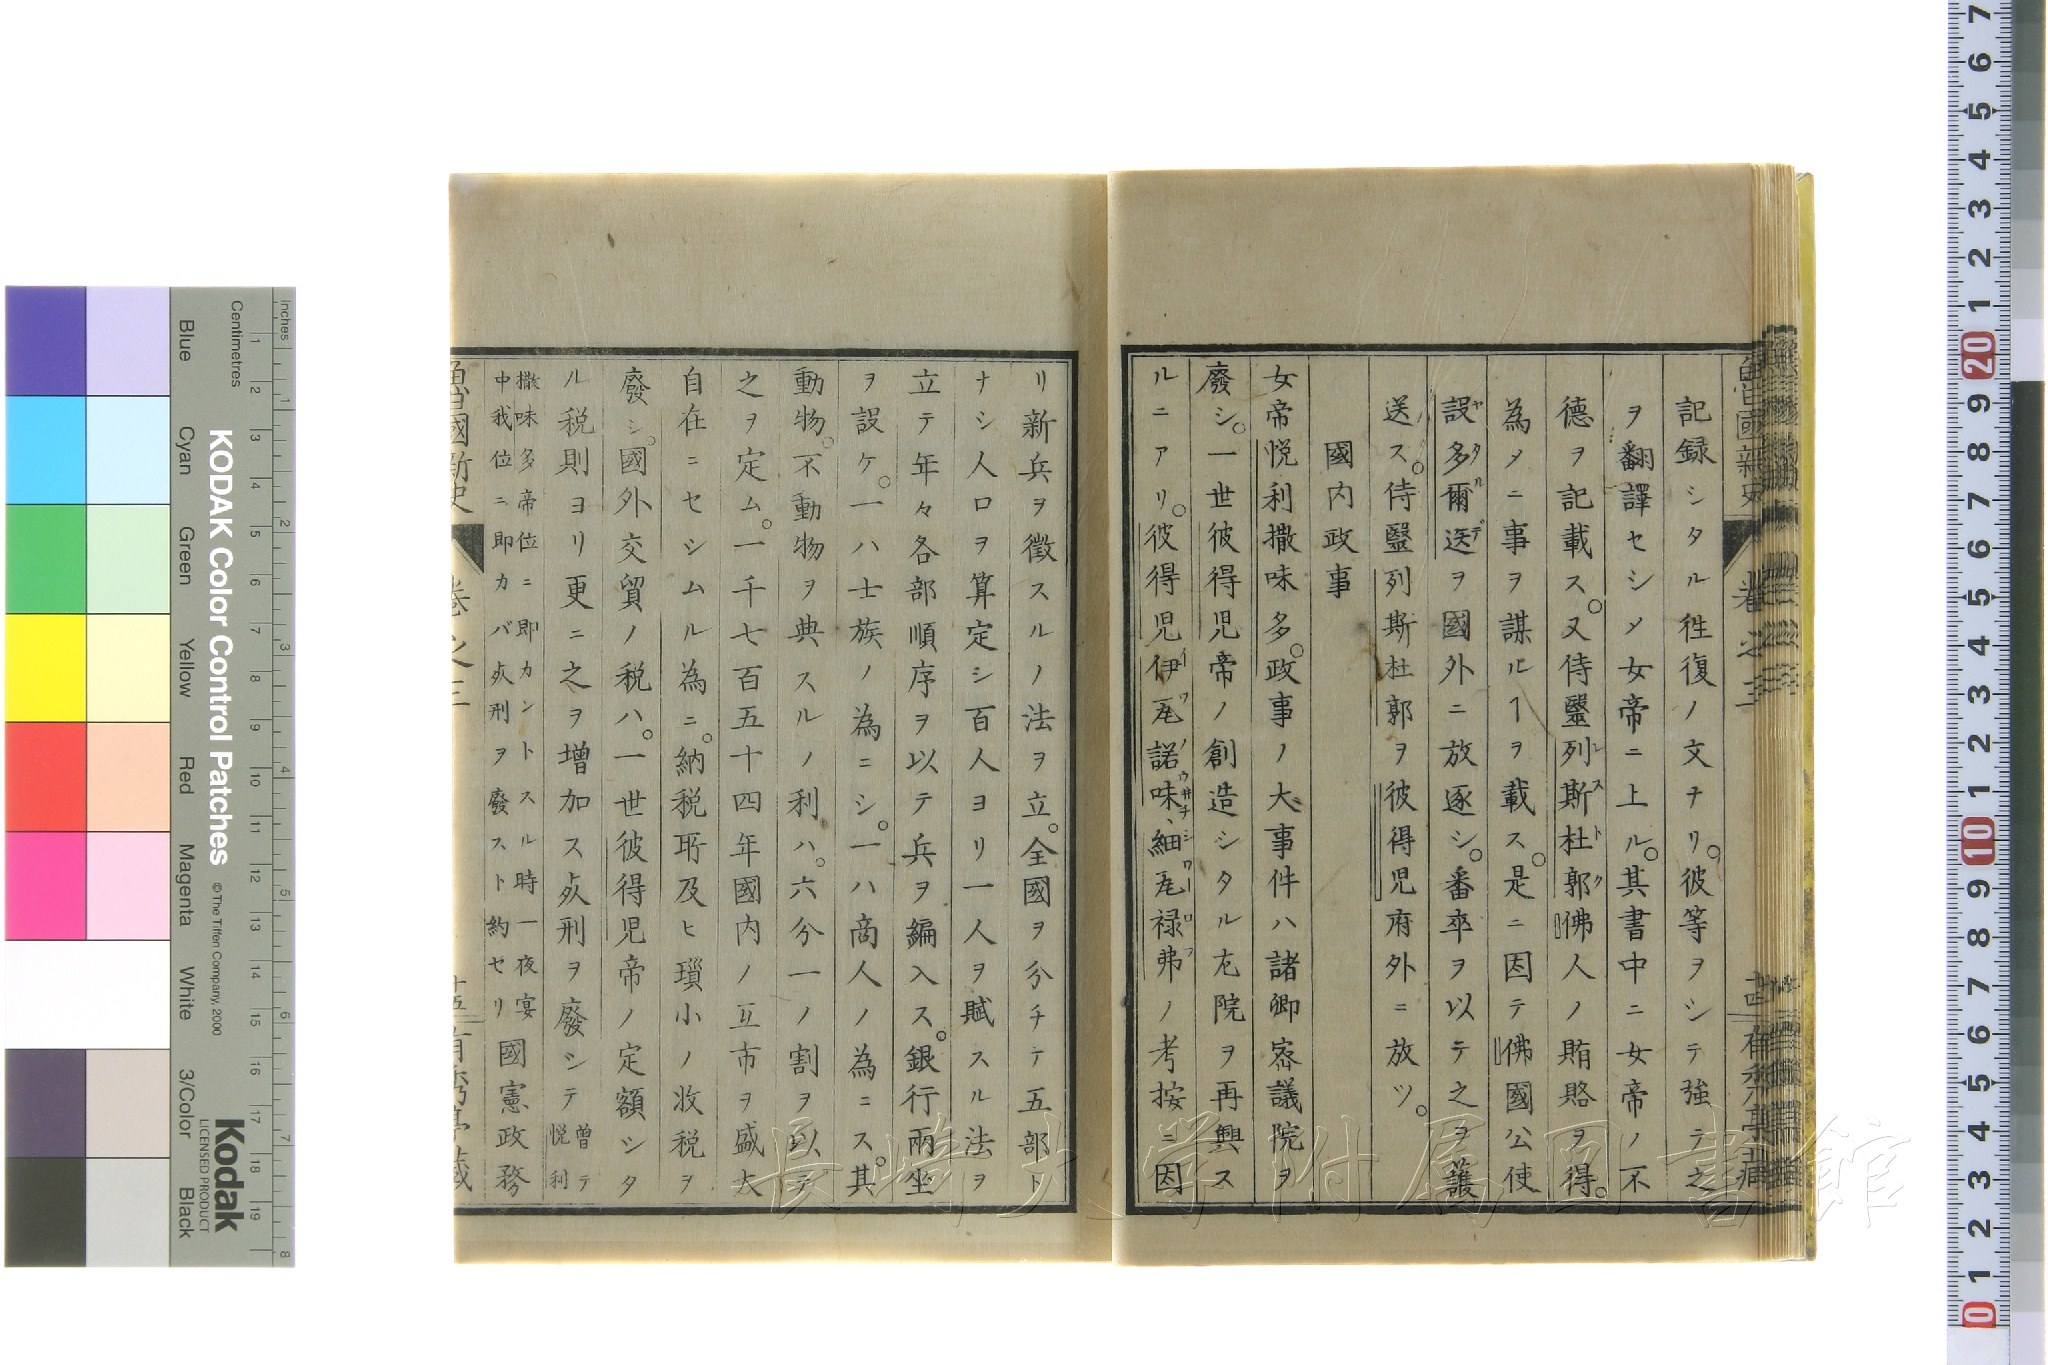 記録シタル徃復ノ文ナリ。彼等ヲシテ強テ之
ヲ翻譯セシメ女帝ニ上ル。其書中ニ女帝ノ不
德ヲ記載ス。又侍毉列斯杜郭佛人ノ賄賂ヲ得。
為メニ事ヲ謀ルヿヲ載ス。是ニ因テ佛國公使
設多爾送ヲ國外ニ放逐シ。番卒ヲ以テ之ヲ護
送ス。侍毉列斯杜郭ヲ彼得児府外ニ放ツ。
國内政事
女帝悦利撒味多。政事ノ大事件ハ諸卿密議院ヲ
廢シ。一世彼得児帝ノ創造シタル左院ヲ再興ス
ルニアリ。彼得児伊瓦諾味、細瓦禄弗ノ考按ニ因
リ新兵ヲ徴スルノ法ヲ立。全國ヲ分チテ五部ト
ナシ人口ヲ算定シ百人ヨリ一人ヲ賦スル法ヲ
立テ年々各部順序ヲ以テ兵ヲ編入ス。銀行兩坐
ヲ設ケ。一ハ士族ノ為ニシ。一ハ商人ノ為ニス。其
動物。不動物ヲ典スルノ利ハ。六分一ノ割ヲ以テ
之ヲ定ム。一千七百五十四年國内ノ互市ヲ盛大
自在ニセシムル為ニ。納税所及ヒ瑣小ノ收税ヲ
廢シ。國外交貿ノ税ハ。一世彼得児帝ノ定額シタ
ル税則ヨリ更ニ之ヲ増加ス死刑ヲ廢シテ曽テ悦利
撒味多帝位ニ即カントスル時一夜宴
中我位ニ即カバ死刑ヲ廢スト約セリ國憲政務
魯國新史
卷之三
十四
十五
有秀亭藏
長崎大学附属図書館
KODAK Color Control Patches
© The Tiffen Company, 2000
Kodak
LICENSED PRODUCT
Centimetres
Inches
Blue
Cyan
Green
Yellow
Red
Magenta
White
3/Color
Black